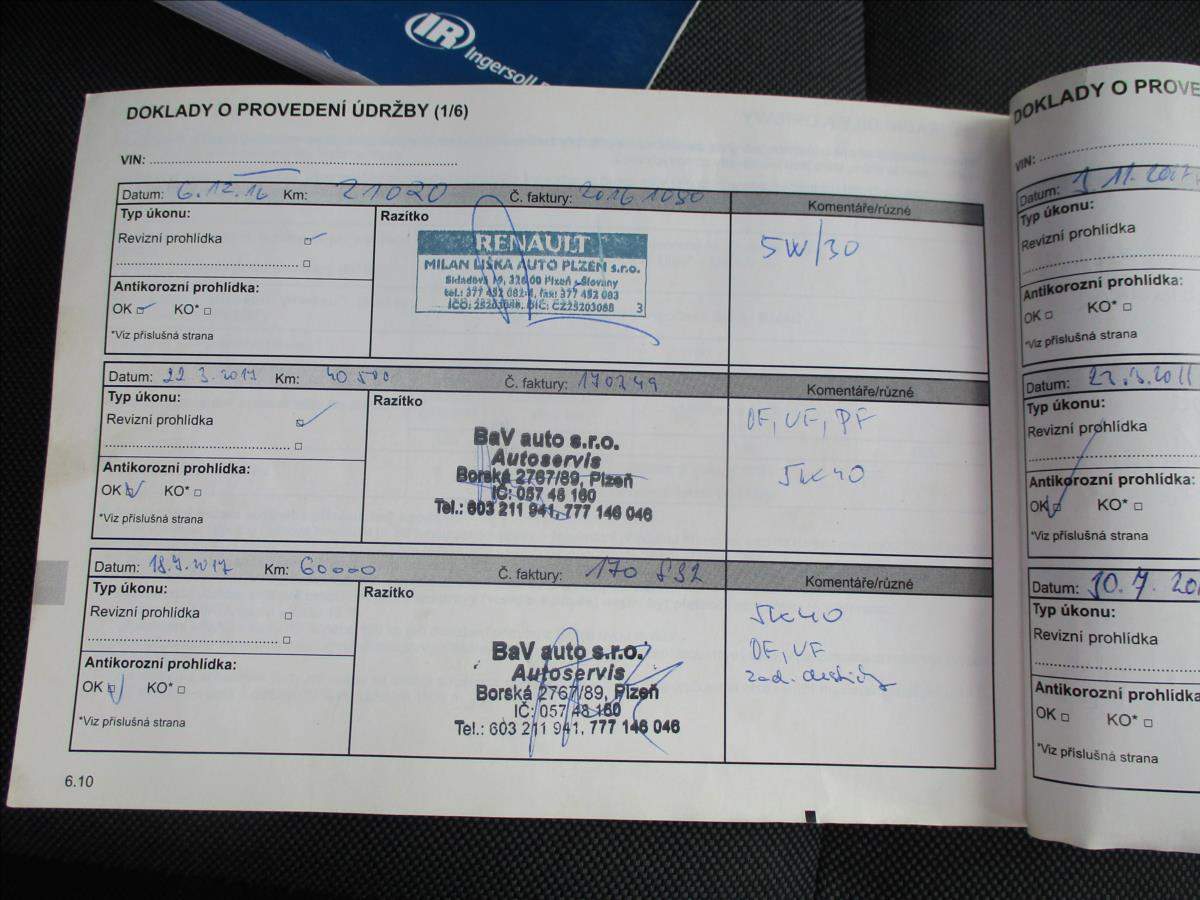 IR
Ingersoll
DOKLADY O PROVEDENÍ ÚDRŽBY (1/6)
VIN:
Datum: 6.12.16 Km: 21020 Č. faktury: 20161080
Komentáře/různé
Typ úkonu:
Revizní prohlídka
Antikorozní prohlídka:
OK KO*
*Viz příslušná strana
Razítko
RENAULT
MILAN LIŠKA AUTO PLZEŇ s.r.o.
Skladová 19, 326 00 Plzeň - Slovany
tel.: 377 452 082-4, fax: 377 452 083
IČO: 25203088, DIČ: CZ25203088 3
5W/30
Datum: 22.3.2017 Km: 40 500 Č. faktury: 170249
Komentáře/různé
Typ úkonu:
Revizní prohlídka
Antikorozní prohlídka:
OK KO*
*Viz příslušná strana
Razítko
BaV auto s.r.o.
Autoservis
Borská 2767/89, Plzeň
IČ: 057 48 160
Tel.: 603 211 941, 777 146 046
OF, VF, PF
5W40
Datum: 18.9.2017 Km: 60000 Č. faktury: 170 832
Komentáře/různé
Typ úkonu:
Revizní prohlídka
Antikorozní prohlídka:
OK KO*
*Viz příslušná strana
Razítko
BaV auto s.r.o.
Autoservis
Borská 2767/89, Plzeň
IČ: 057 48 160
Tel.: 603 211 941, 777 146 046
5W40
OF, VF
zad. destičky
6.10
DOKLADY O PROVE
VIN:
Datum: 11.2017
Typ úkonu:
Revizní prohlídka
Antikorozní prohlídka:
OK KO*
*Viz příslušná strana
Datum:
Typ úkonu:
Revizní prohlídka
Antikorozní prohlídka:
OK KO*
*Viz příslušná strana
Datum: 10.7.20
Typ úkonu:
Revizní prohlídka
Antikorozní prohlídka
OK KO*
*Viz příslušná strana